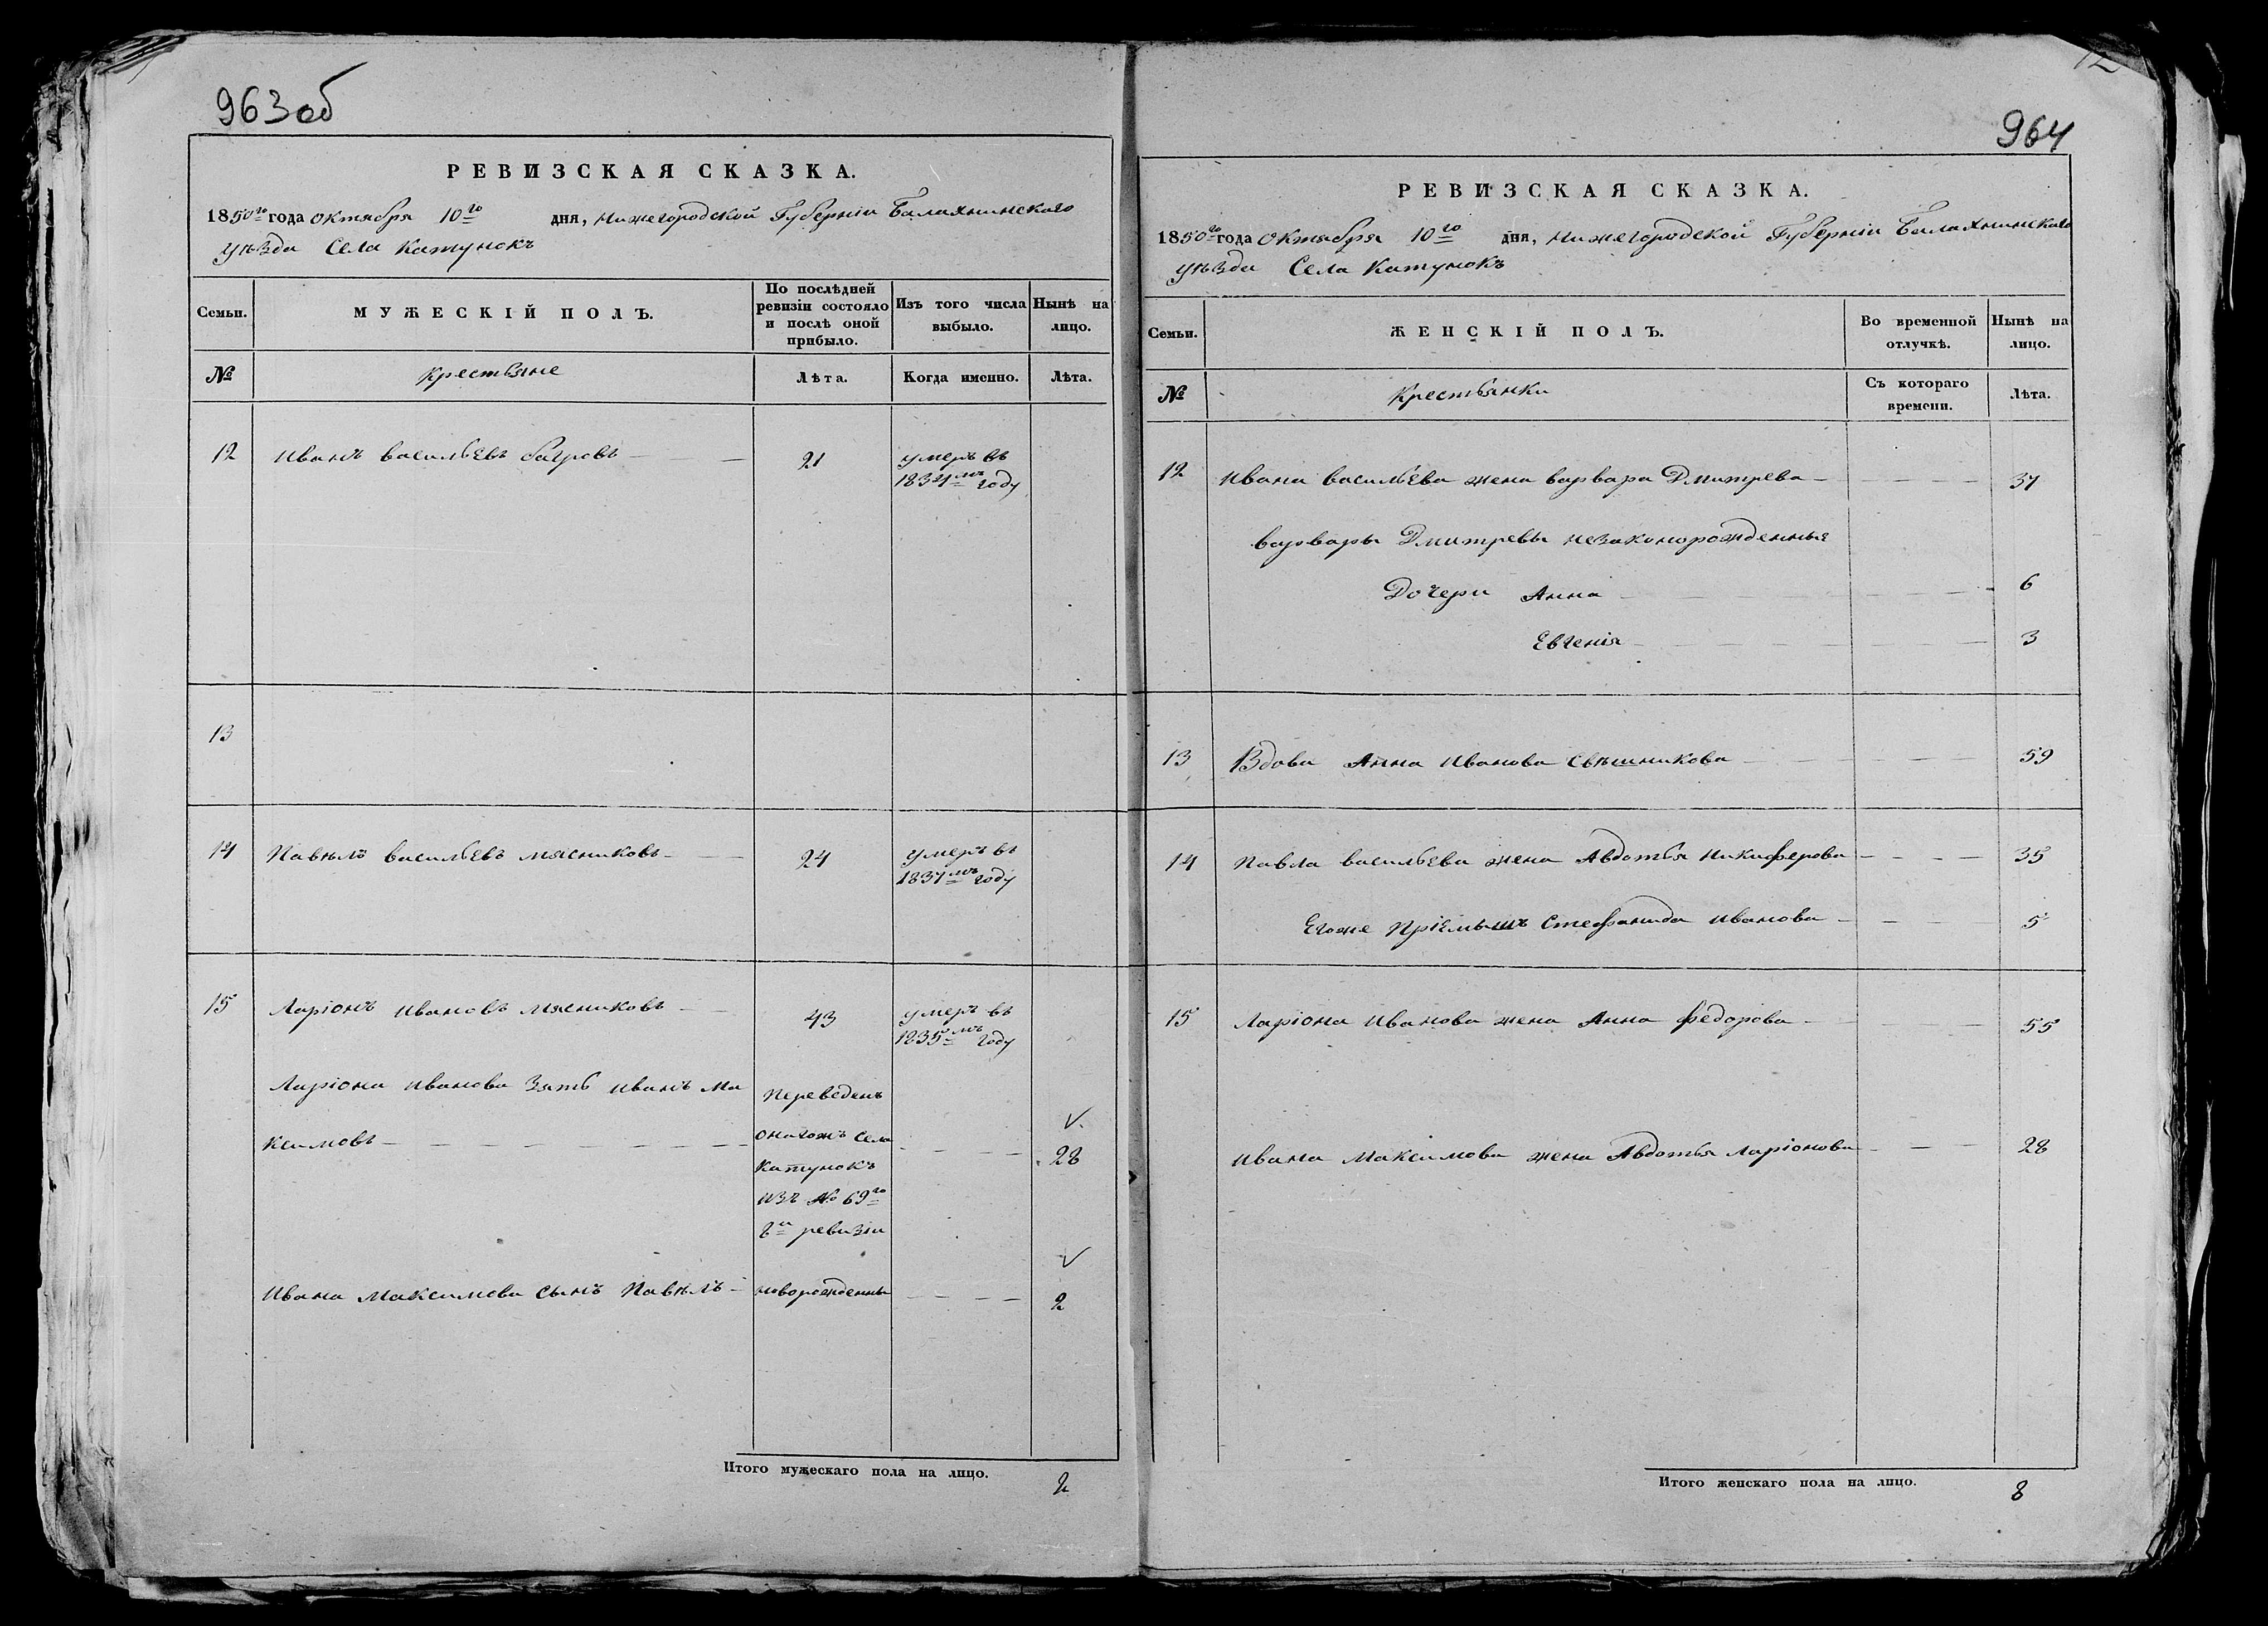 963об
РЕВИЗСКАЯ СКАЗКА.
1850го года октября 10го дня, Нижегородской Губернiи Балахнинскаго
уѣзда Села Катунокъ
Семьи.
МУЖЕСКIЙ ПОЛЪ.
По послѣдней ревизiи состояло и послѣ оной прибыло.
Изъ того числа выбыло.
Нынѣ на лицо.
№
Крестьяне
Лѣта.
Когда именно.
Лѣта.
12 Иванъ васильевъ багровъ 21 умеръ въ
1834мъ году
13
14 Павелъ васильевъ мясниковъ 24 умеръ въ
1837мъ году
15 Ларiонъ Ивановъ мясниковъ 43 умеръ въ
1835мъ году
Ларiона Иванова Зять Иванъ Ма
ксимовъ
Переведенъ
оногожъ Села
Катунокъ
изъ № 69го
8й ревизiи
28
Ивана Максимова сынъ Павелъ новорожденны 2
Итого мужескаго пола на лицо. 2
964
РЕВИЗСКАЯ СКАЗКА.
1850го года Октября 10го дня, Нижегородской Губернiи Балахнинскаго
уѣзда Села Катунокъ
Семьи.
ЖЕНСКIЙ ПОЛЪ.
Во временной отлучкѣ.
Нынѣ на лицо.
№
Крестьянки
Съ котораго времени.
Лѣта.
12 Ивана васильева жена варвара Дмитрева 37
варвары Дмитревы незаконорожденныя
Дочери Анна 6
Евгенiя 3
13 Вдова Анна Иванова Свѣшникова 59
14 Павла васильева жена Авдотья Никиферова 35
Егоже Прiемышъ Стефанида Иванова 5
15 Ларiона Иванова жена Анна федорова 55
Ивана Максимова жена Авдотья Ларiонова 28
Итого женскаго пола на лицо. 8